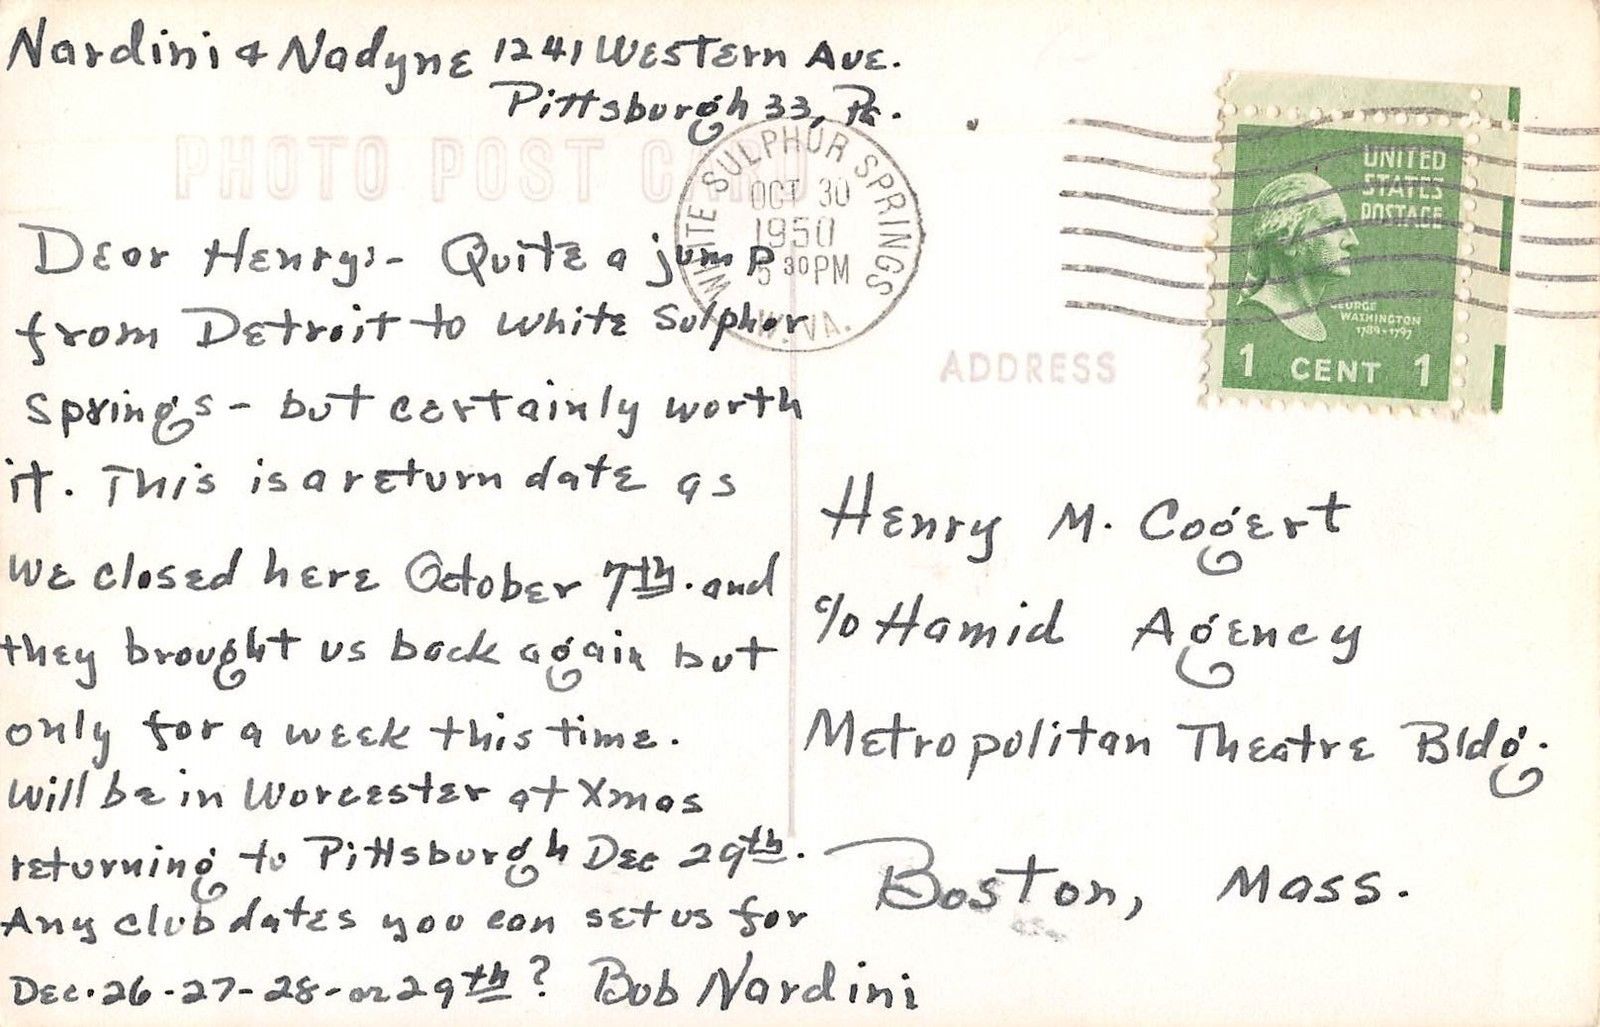 Nardini & Nadyne 1241 Western Ave.
Pittsburgh 33, Pa.
PHOTO POST CARD
WHITE SULPHUR SPRINGS
OCT 30
1950
5 30 PM
W. VA.
UNITED
STATES
POSTAGE
GEORGE
WASHINGTON
1789-1797
1 CENT 1
Dear Henry:- Quite a jump
from Detroit to White Sulphur
Springs - but certainly worth
it. This is a return date as
we closed here October 7th. and
they brought us back again but
only for a week this time.
Will be in Worcester at Xmas
returning to Pittsburgh Dec 29th.
Any club dates you can set us for
Dec. 26-27-28-or 29th? Bob Nardini
ADDRESS
Henry M. Cogert
c/o Hamid Agency
Metropolitan Theatre Bldg.
Boston, Mass.